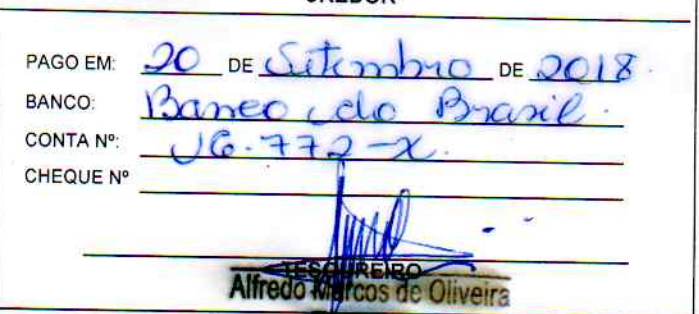 CREDOR
PAGO EM: 20 DE Setembro DE 2018.
BANCO: Banco do Brasil.
CONTA Nº: 16.772-X.
CHEQUE Nº
TESOUREIRO
Alfredo Marcos de Oliveira